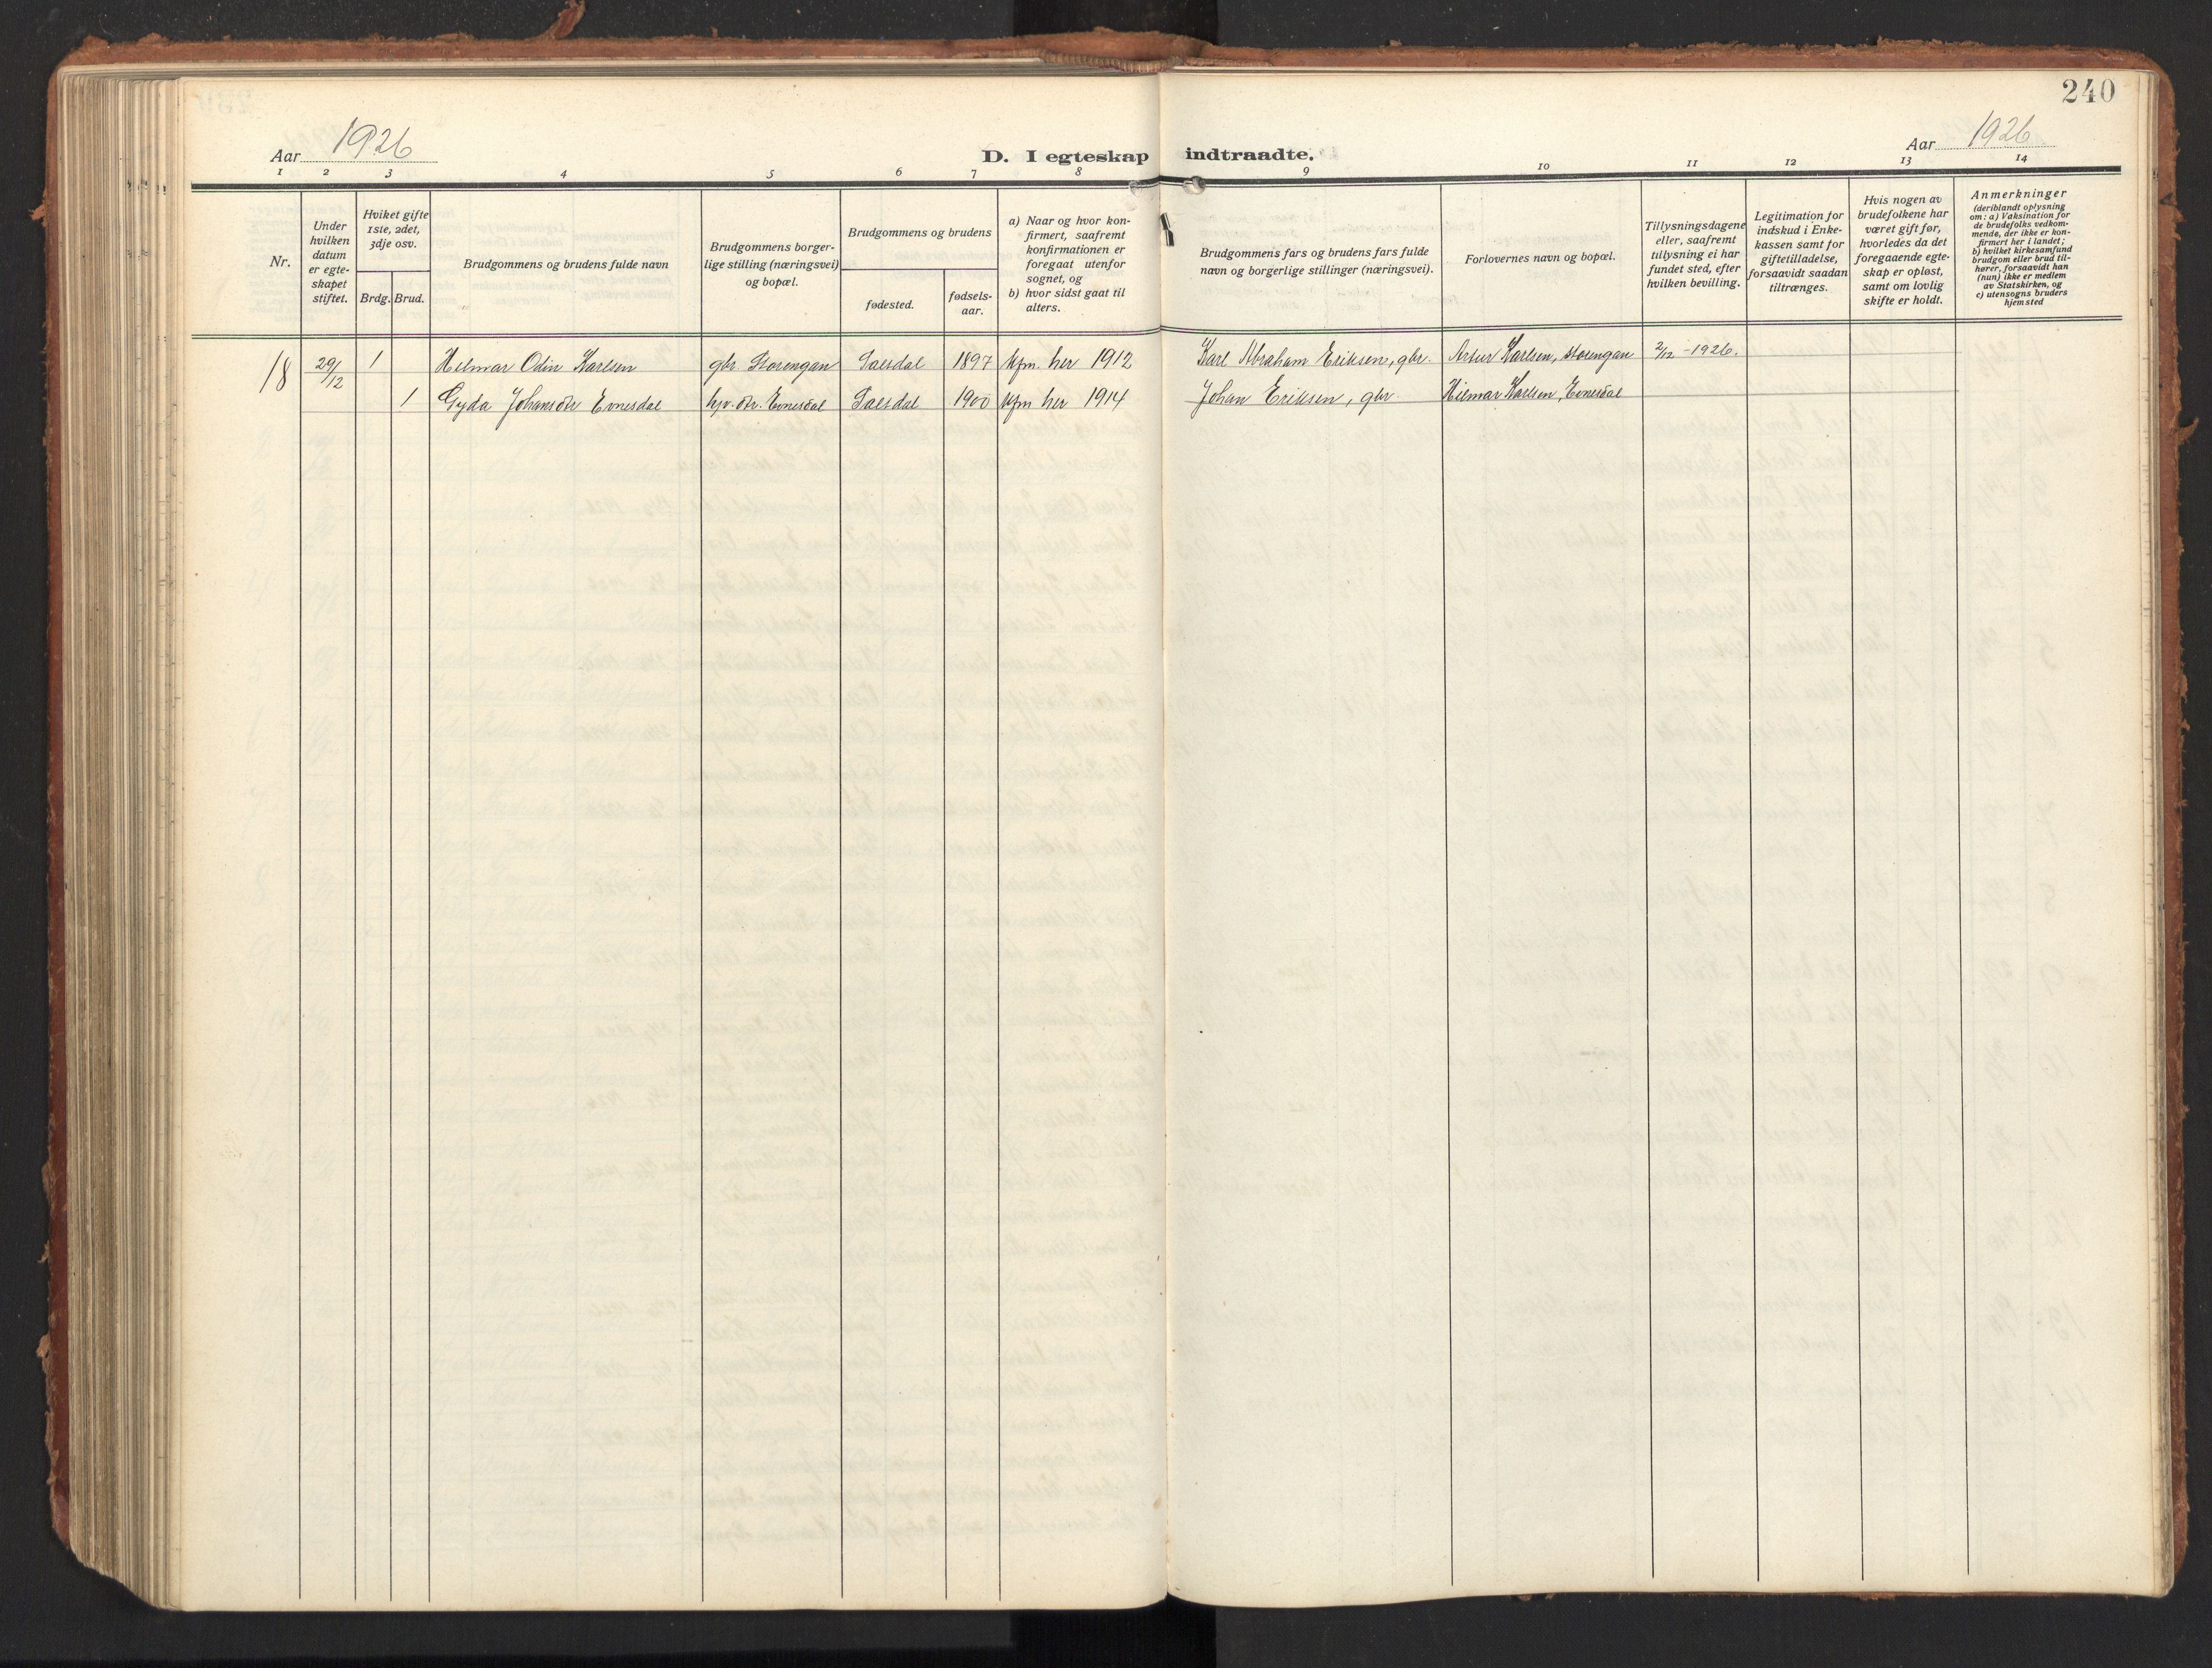 240
Aar 1926
D. I egteskap indtraadte.
Aar 1926
1 2 3 4 5 6 7 8 9 10 11 12 13 14
Nr.
Under
hvilken
datum
er egte-
skapet
stiftet.
Hviket gifte
1ste, 2det,
3dje osv.
Brdg. Brud.
Brudgommens og brudens fulde navn
Brudgommens borger-
lige stilling (næringsvei)
og bopæl.
Brudgommens og brudens
fødested.
fødsels-
aar.
a) Naar og hvor kon-
firmert, saafremt
konfirmationen er
foregaat utenfor
sognet, og
b) hvor sidst gaat til
alters.
Brudgommens fars og brudens fars fulde
navn og borgerlige stillinger (næringsvei).
Forlovernes navn og bopæl.
Tillysningsdagene
eller, saafremt
tillysning ei har
fundet sted, efter
hvilken bevilling.
Legitimation for
indskud i Enke-
kassen samt for
giftetilladelse,
forsaavidt saadan
tiltrænges.
Hvis nogen av
brudefolkene har
været gift før,
hvorledes da det
foregaaende egte-
skap er opløst,
samt om lovlig
skifte er holdt.
Anmerkninger
(deriblandt oplysning
om: a) Vaksination for
de brudefolks vedkom-
mende, der ikke er kon-
firmert her i landet;
b) hvilket kirkesamfund
brudgom eller brud til-
hører, forsaavidt han
(hun) ikke er medlem
av Statskirken, og
c) utensogns bruders
hjemsted
18 29/12 1 Hilmar Odin Karlsen gbr. Storengan Salsdal 1897 kfm. her 1912 Karl Abraham Eriksen, gbr. Artur Karlsen, Storengan 2/12 - 1926.
1 Gyda Johansdtr Evnesdal hjv. dtr. Evnesdal Salsdal 1900 kfm her 1914 Johan Eriksen, gbr. Hilmar Karlsen, Evnesdal